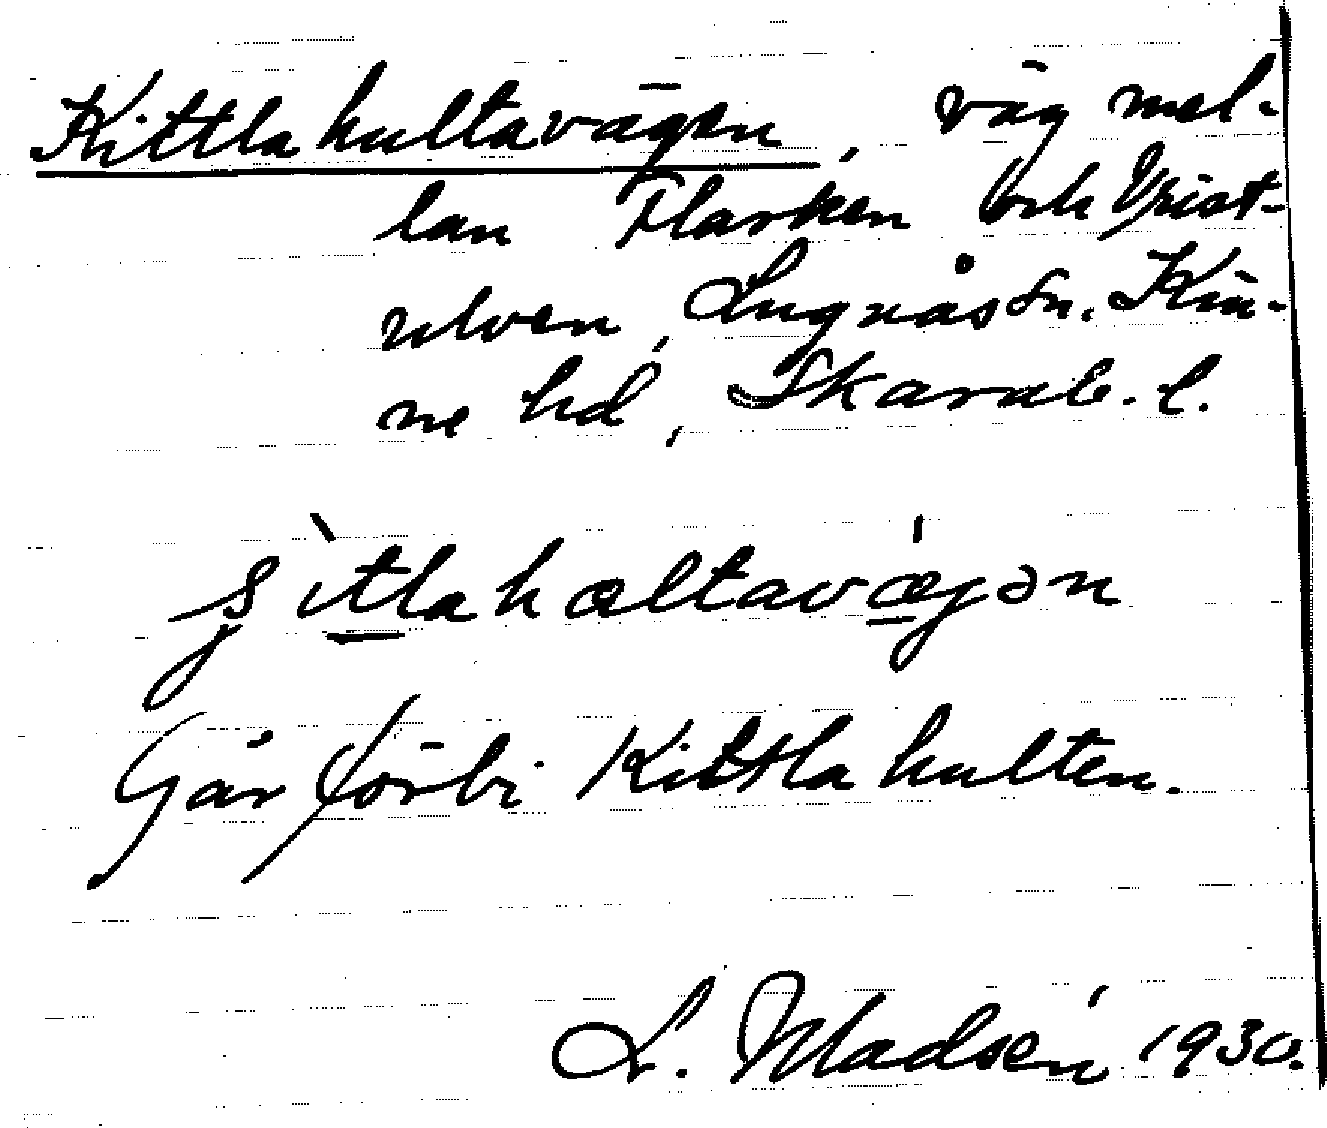 Kittlahultavägen, väg mel-
lan Flarken och Vrist-
ulven, Lugnås sn. Kin-
ne hd, Skarab. l.
Går förbi Kittlahulten.
L. Madsén 1930.